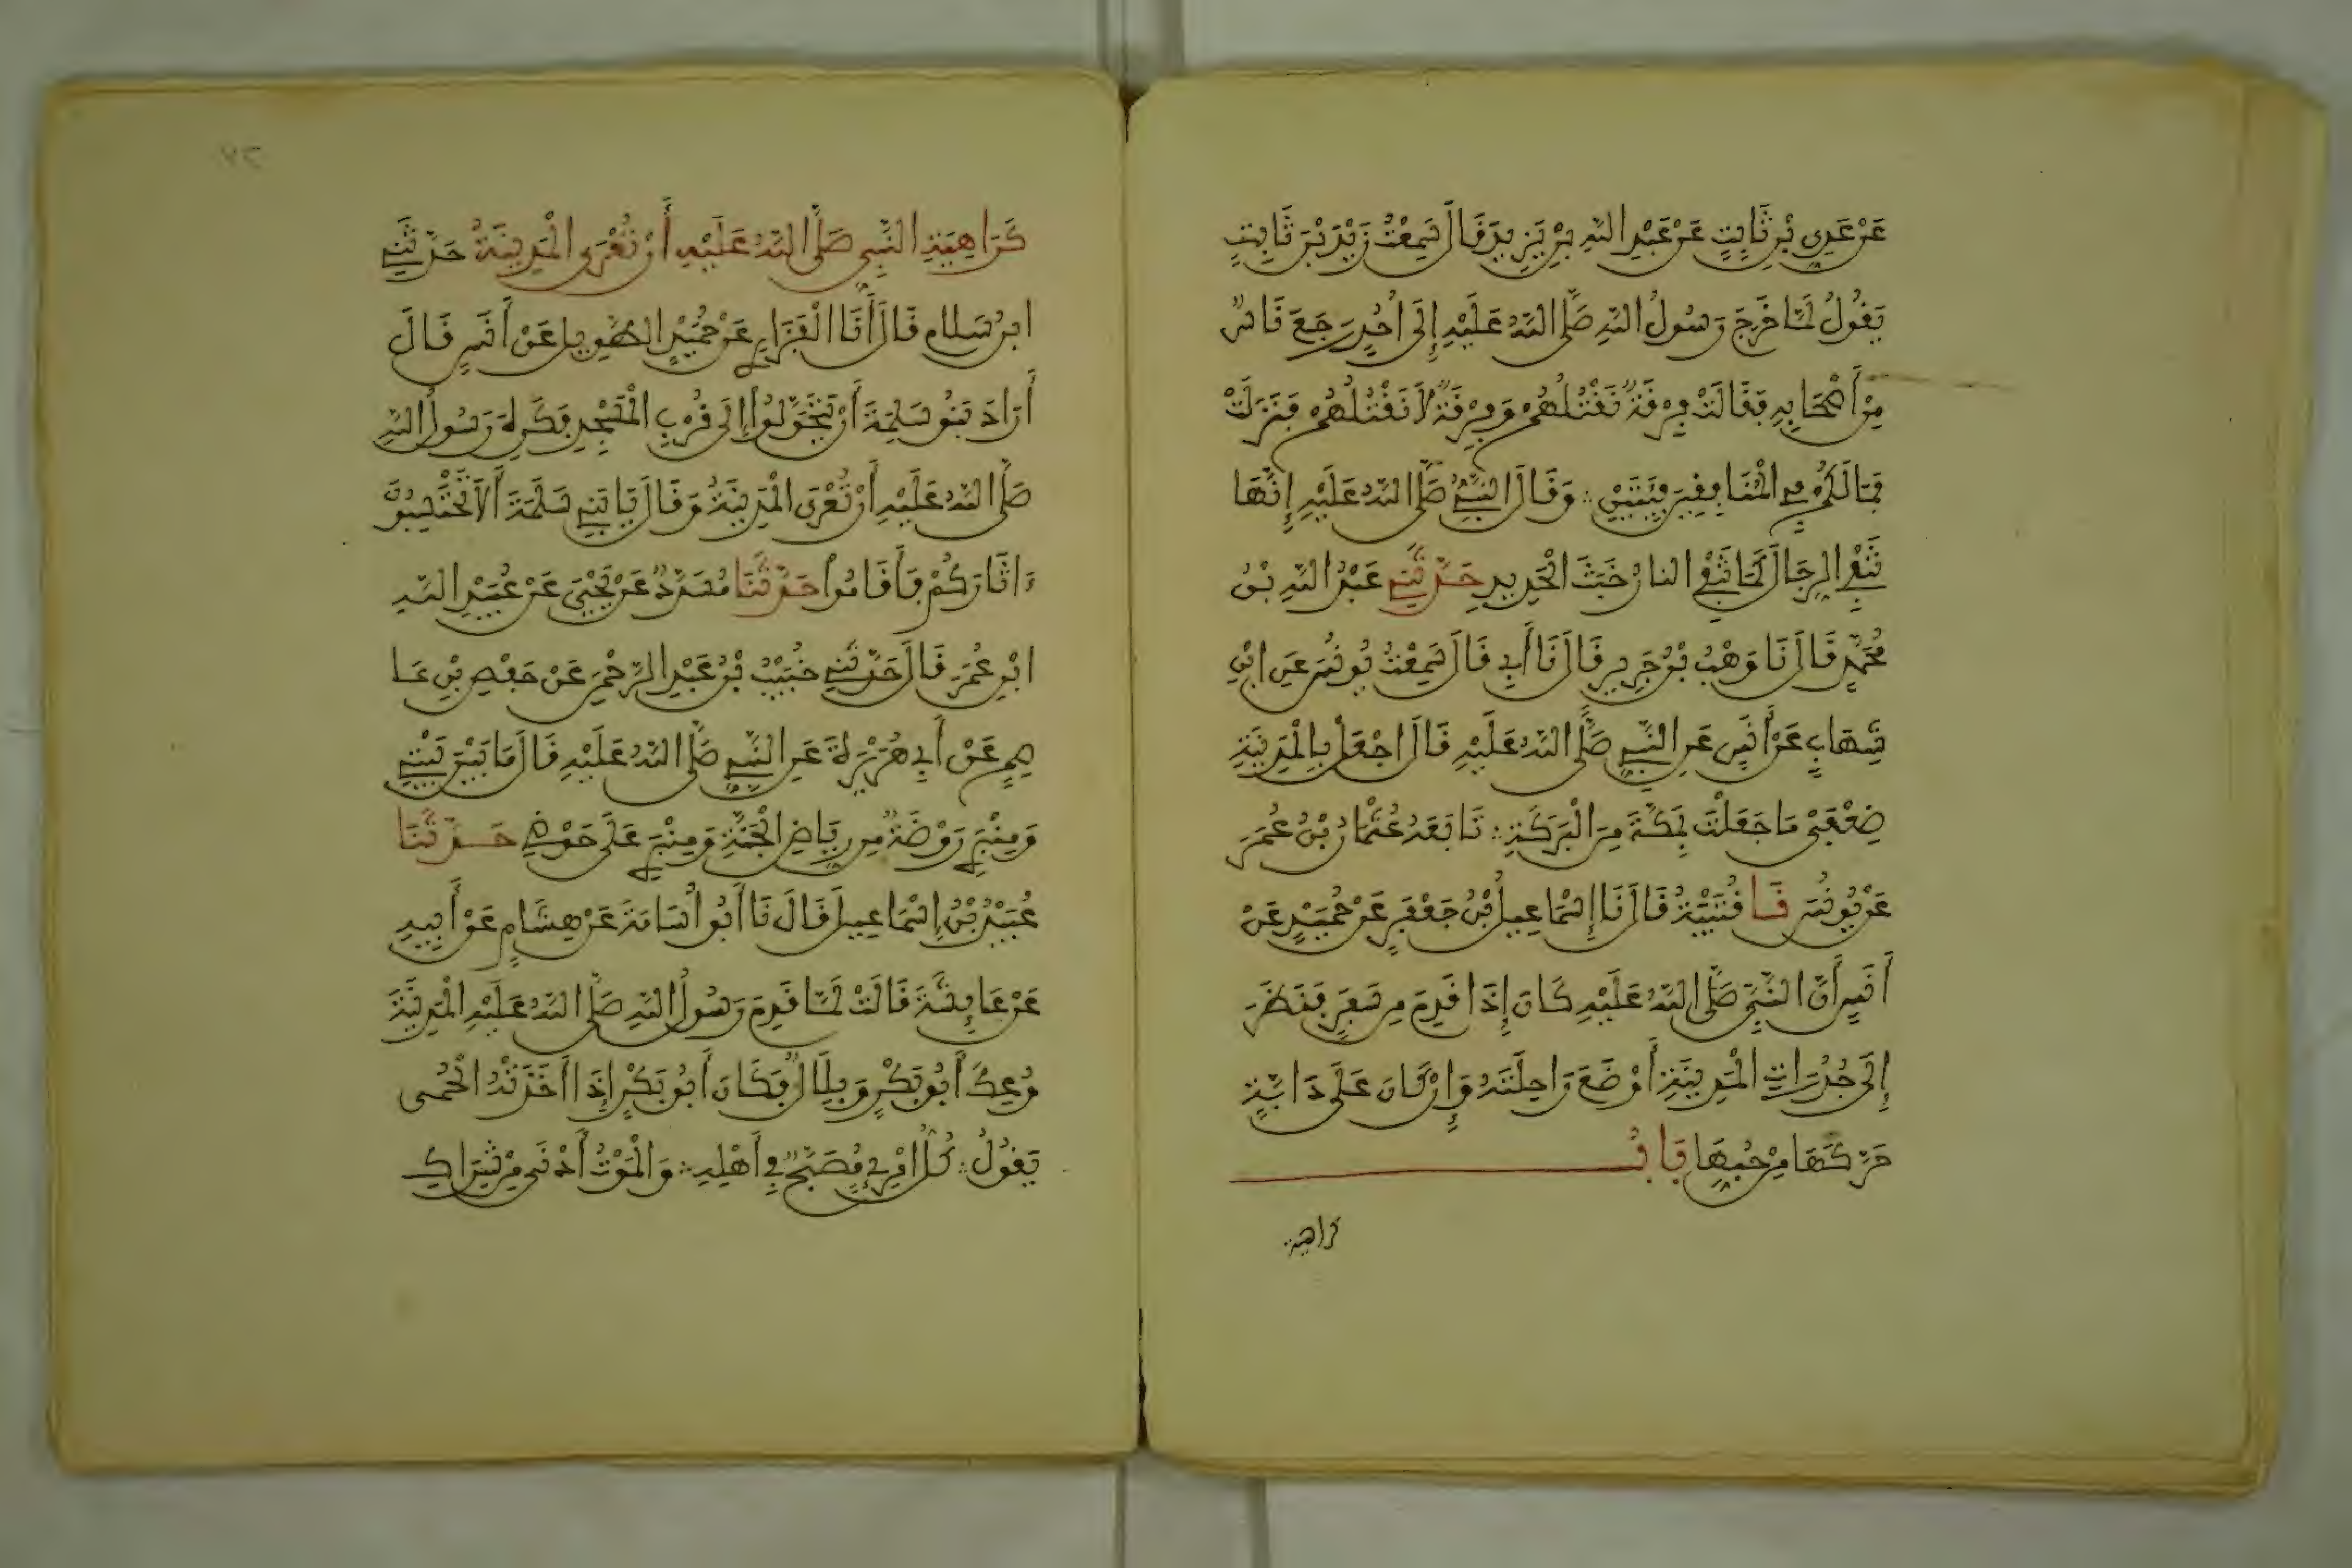 عَنْ عَدِيِّ بْنِ ثَابِتٍ عَنْ عَبْدِ اللهِ بْنِ يَزِيدَ قَالَ سَمِعْتُ زَيْدَ بْنَ ثَابِتٍ
يَقُولُ لَمَّا خَرَجَ رَسُولُ اللهِ صَلَّى اللهُ عَلَيْهِ إِلَى أُحُدٍ رَجَعَ نَاسٌ
مِنْ أَصْحَابِهِ فَقَالَتْ فِرْقَةٌ نَقْتُلُهُمْ وَفِرْقَةٌ لَا نَقْتُلُهُمْ فَنَزَلَتْ
فَمَا لَكُمْ فِي الْمُنَافِقِينَ فِئَتَيْنِ ؞ وَقَالَ النَّبِيُّ صَلَّى اللهُ عَلَيْهِ إِنَّهَا
تَنْفِي الرِّجَالَ كَمَا تَنْفِي النَّارُ خَبَثَ الْحَدِيدِ حَدَّثَنِي عَبْدُ اللهِ بْنُ
مُحَمَّدٍ قَالَ نَا وَهْبُ بْنُ جَرِيرٍ قَالَ نَا أَبِي قَالَ سَمِعْتُ يُونُسَ عَنِ ابْنِ
شِهَابٍ عَنْ أَنَسٍ عَنِ النَّبِيِّ صَلَّى اللهُ عَلَيْهِ قَالَ اجْعَلْ بِالْمَدِينَةِ
ضِعْفَيْ مَا جَعَلْتَ بِمَكَّةَ مِنَ الْبَرَكَةِ ؞ تَابَعَهُ عُثْمَانُ بْنُ عُمَرَ
عَنْ يُونُسَ نَا قُتَيْبَةُ قَالَ نَا إِسْمَاعِيلُ بْنُ جَعْفَرٍ عَنْ حُمَيْدٍ عَنْ
أَنَسٍ أَنَّ النَّبِيَّ صَلَّى اللهُ عَلَيْهِ كَانَ إِذَا قَدِمَ مِنْ سَفَرٍ فَنَظَرَ
إِلَى جُدُرَاتِ الْمَدِينَةِ أَوْضَعَ رَاحِلَتَهُ وَإِنْ كَانَ عَلَى دَابَّةٍ
حَرَّكَهَا مِنْ حُبِّهَا بَابُ
كراهية
كَرَاهِيَةِ النَّبِيِّ صَلَّى اللهُ عَلَيْهِ أَنْ تُعْرَى الْمَدِينَةُ حَدَّثَنِي
ابْنُ سَلَامٍ قَالَ أَنَا الْفَزَارِي عَنْ حُمَيْدٍ الطَّوِيلِ عَنْ أَنَسٍ قَالَ
أَرَادَ بَنُو سَلِمَةَ أَنْ يَتَحَوَّلُوا إِلَى قُرْبِ الْمَسْجِدِ فَكَرِهَ رَسُولُ اللهِ
صَلَّى اللهُ عَلَيْهِ أَنْ تُعْرَى الْمَدِينَةُ وَقَالَ يَا بَنِي سَلِمَةَ أَلَا تَحْتَسِبُونَ
ءَاثَارَكُمْ فَأَقَامُوا حَدَّثَنَا مُسَدَّدٌ عَنْ يَحْيَى عَنْ عُبَيْدِ اللهِ
ابْنِ عُمَرَ قَالَ حَدَّثَنِي خُبَيْبُ بْنُ عَبْدِ الرَّحْمَنِ عَنْ حَفْصِ بْنِ عَا
صِمٍ عَنْ أَبِي هُرَيْرَةَ عَنِ النَّبِيِّ صَلَّى اللهُ عَلَيْهِ قَالَ مَا بَيْنَ بَيْتِي
وَمِنْبَرِي رَوْضَةٌ مِنْ رِيَاضِ الْجَنَّةِ وَمِنْبَرِي عَلَى حَوْضِي حَدَّثَنَا
عُبَيْدُ بْنُ إِسْمَاعِيلَ قَالَ نَا أَبُو أُسَامَةَ عَنْ هِشَامٍ عَنْ أَبِيهِ
عَنْ عَائِشَةَ قَالَتْ لَمَّا قَدِمَ رَسُولُ اللهِ صَلَّى اللهُ عَلَيْهِ الْمَدِينَةَ
وُعِكَ أَبُو بَكْرٍ وَبِلَالٌ فَكَانَ أَبُو بَكْرٍ إِذَا أَخَذَتْهُ الْحُمَّى
يَقُولُ ؞ كُلُّ امْرِئٍ مُصَبَّحٌ فِي أَهْلِهِ ؞ وَالْمَوْتُ أَدْنَى مِنْ شِرَاكِ